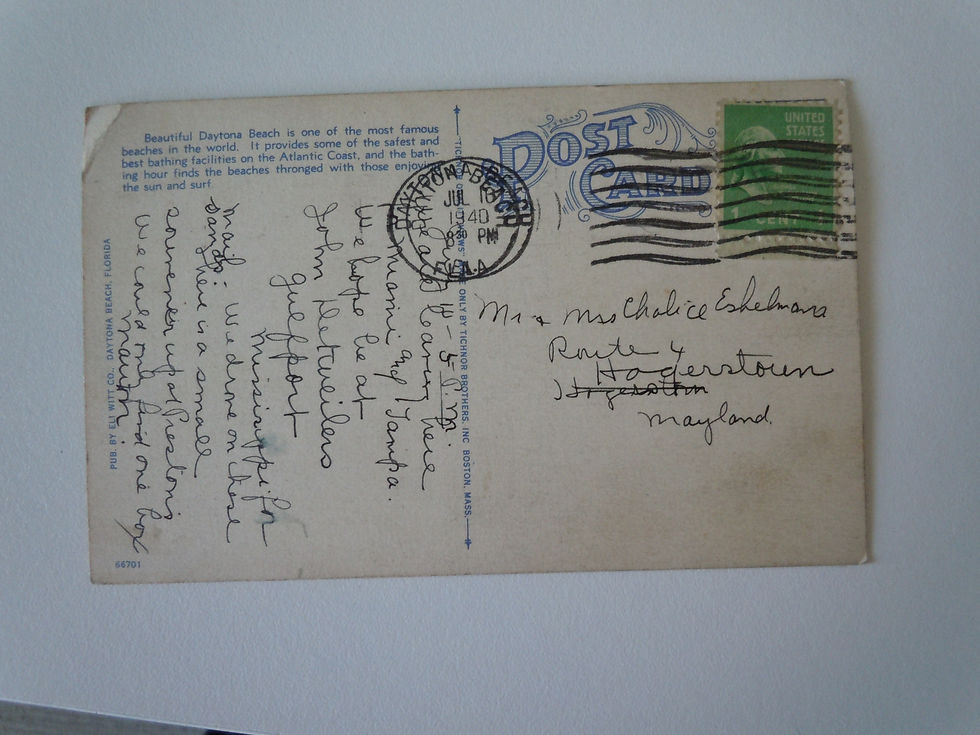 Beautiful Daytona Beach is one of the most famous
beaches in the world. It provides some of the safest and
best bathing facilities on the Atlantic Coast, and the bath-
ing hour finds the beaches thronged with those enjoying
the sun and surf
POST
CARD
UNITED
STATES
1 CENT
DAYTONA BEACH
JUL 10
1940
8 30 PM
FLA.
Mr & Mrs Chalice Eshelman
Route 4
Hagerstown
Mayland.
10 - 5 P.M.
here
Miami and Tampa.
We hope be at
John Detweilers
Gulfport
Mississippi for
mail. We drove on these
sands. There is a small
souvenir up at Preston's
We could only find one box
Martin.
TICHNOR BROTHERS, INC BOSTON, MASS.
ONLY BY
PUB. BY ELI WITT CO., DAYTONA BEACH, FLORIDA
66701